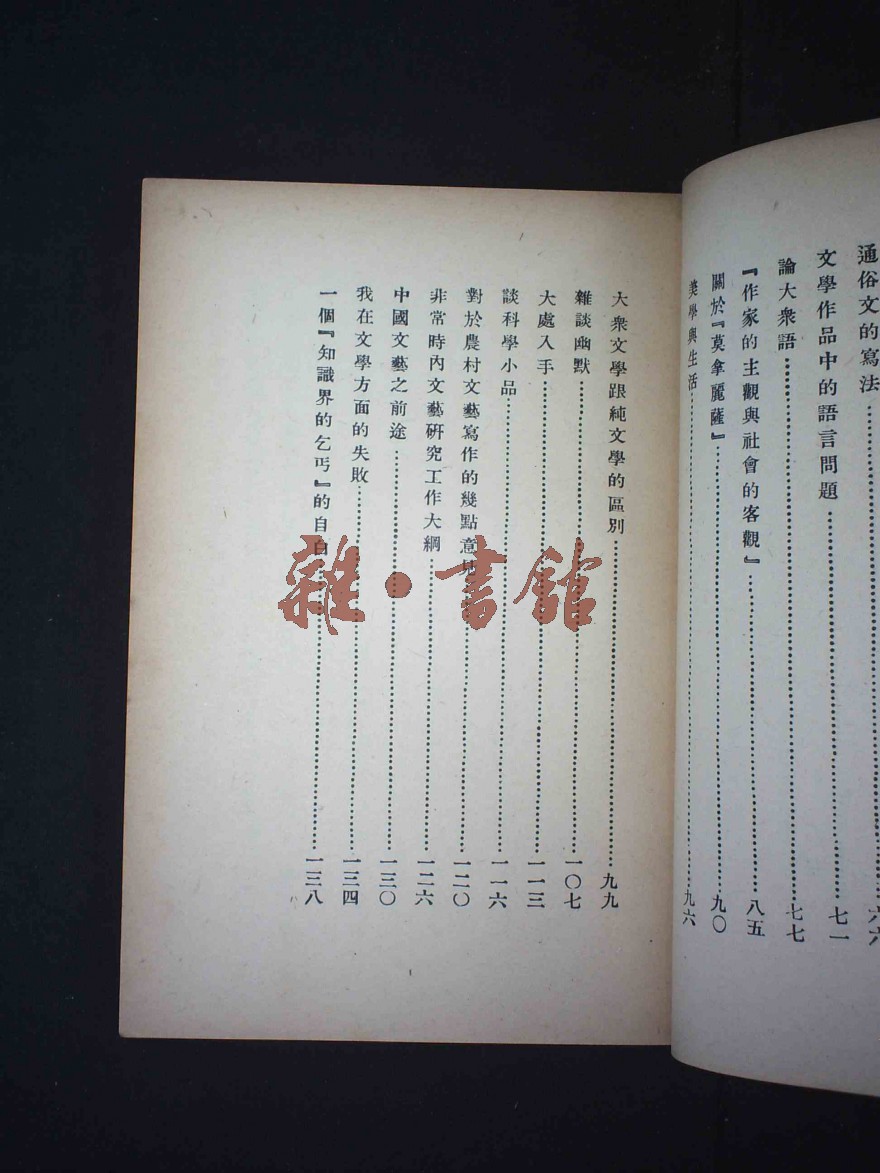 通俗文的寫法 六六
文學作品中的語言問題 七一
論大衆語 七七
『作家的主觀與社會的客觀』 八五
關於『莫拿麗薩』 九〇
美學與生活 九六
大衆文學跟純文學的區別 九九
雜談幽默 一〇七
大處入手 一一三
談科學小品 一一六
對於農村文藝寫作的幾點意見 一二〇
非常時內文藝研究工作大綱 一二六
中國文藝之前途 一三〇
我在文學方面的失敗 一三四
一個『知識界的乞丐』的自白 一三八
雜·書館